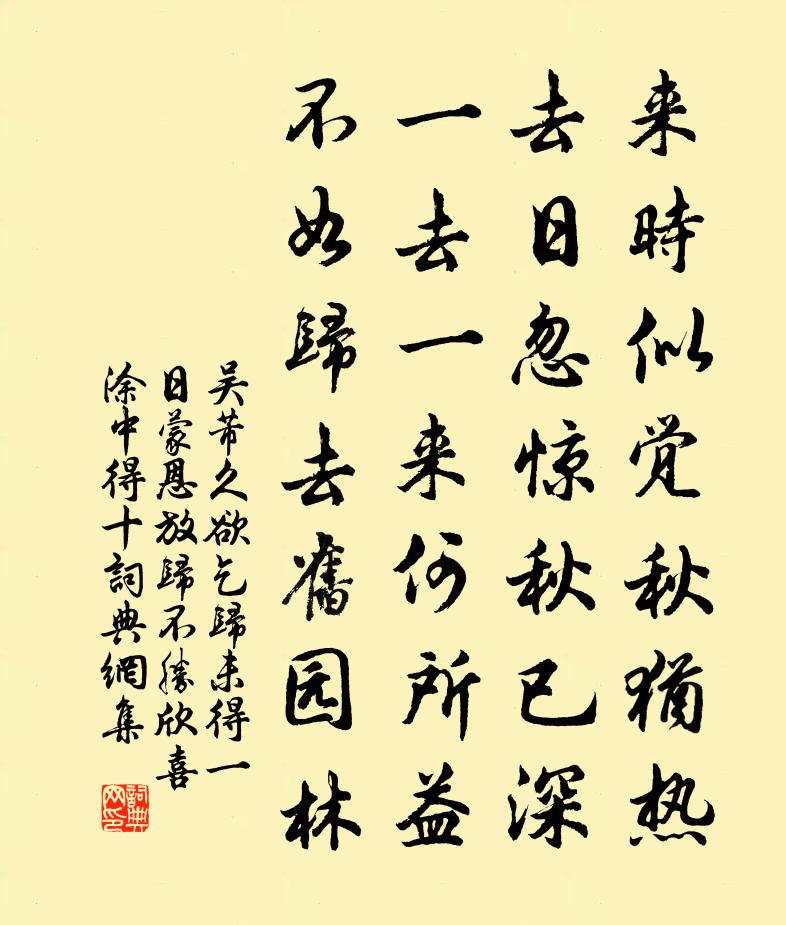 来時似觉秋犹热
去日忽惊秋已深
一去一来何所益
不如歸去舊园林
吴芾久欲乞歸未得一
日蒙恩放歸不勝欣喜
涂中得十詞典網集
詞典
网印